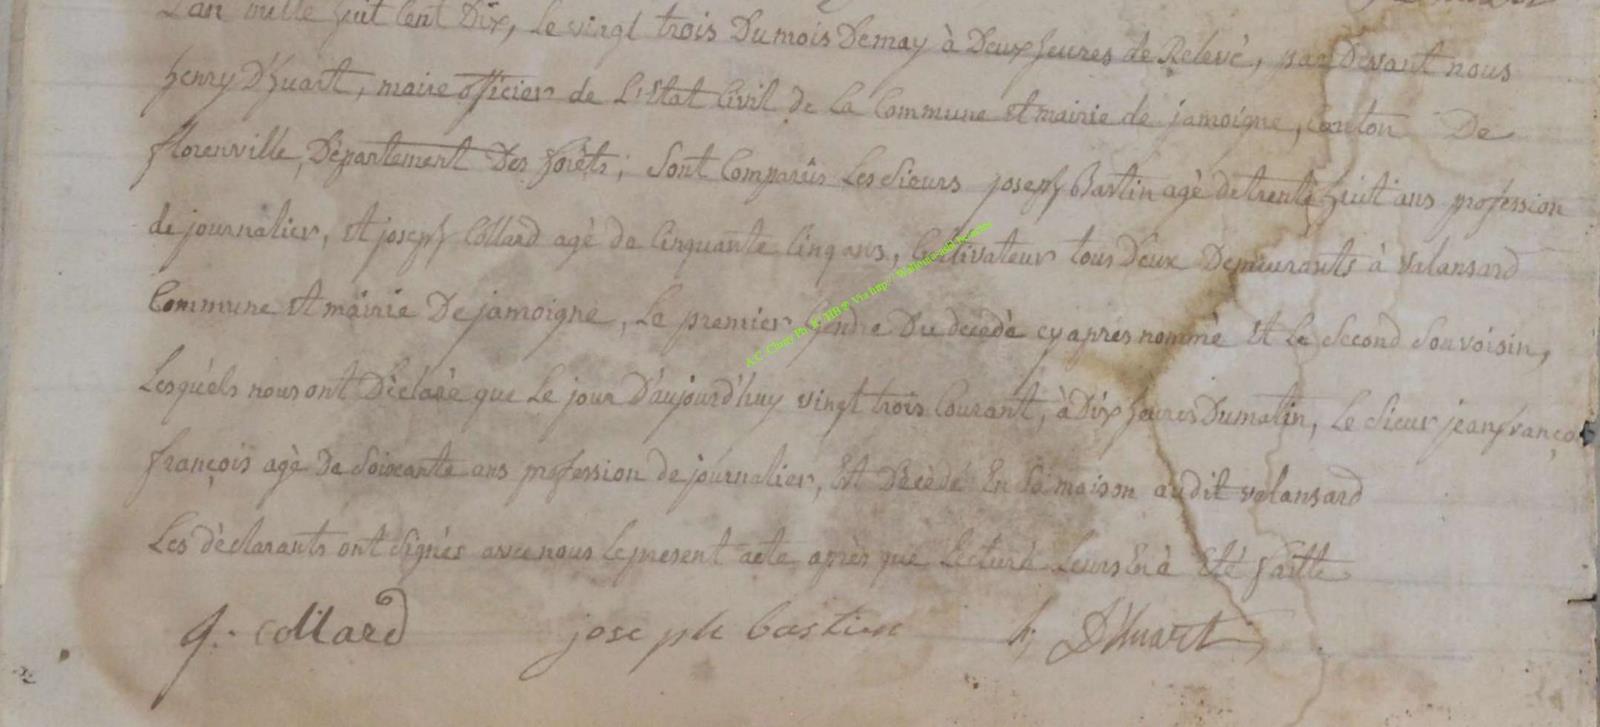 L'an mille huit Cent Dix, Le vingt trois Du mois Demay à Deux heures de Relevé, par Devant nous
henry D'huart, maire officier de L'Etat Civil de La Commune Et mairie de jamoigne, Canton De
florenville, Département Des forêts; Sont Comparûs Les Sieurs joseph Bastin agè de trente huit ans profession
de journalier, Et joseph Collard agè de Cinquante Cinq ans, Cultivateur tous Deux Demeurants à Valansard
Commune Et mairie De jamoigne, Le premier gendre Du decedè cy après nommé Et Le Second Son voisin,
Lesquels nous ont Dèclarè que Le jour D'aujourd'huy vingt trois Courant, à Dix heures Dumatin, Le Sieur jean franço
françois agè De Soixante ans profession de journalier, Est Dècèdé En Sa maison audit valansard
Les dèclarants ont Signés avec nous Le present acte après que Lecture Leurs En à Eté faitte
J. collard joseph bastien h, D'huart
A.C. Chiny Ph. Via http://Wallonia-asbl